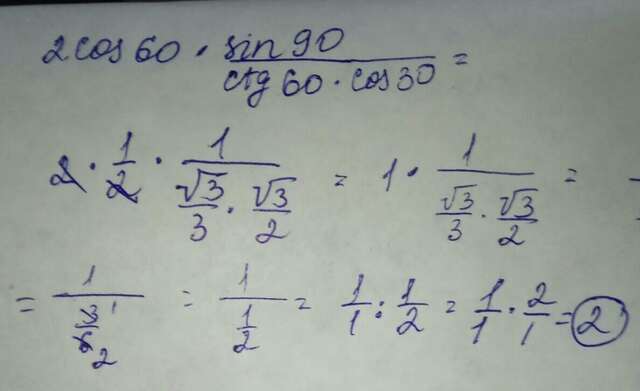 2cos60 · sin90 / (ctg60 · cos30) =
2 · 1/2 · 1 / (√3/3 · √3/2) = 1 · 1 / (√3/3 · √3/2) =
= 1 / (3/6 1 2) = 1 / (1/2) = 1/1 : 1/2 = 1/1 · 2/1 = 2